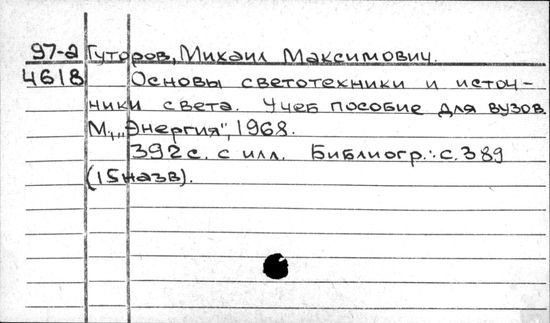 97-а Гуторов, Михаил Максимович.
4618 Основы светотехники и источ-
ники света. Учеб пособие для вузов.
М., „Энергия", 1968.
392 с. с илл. Библиогр.: с. 389
(15 назв).